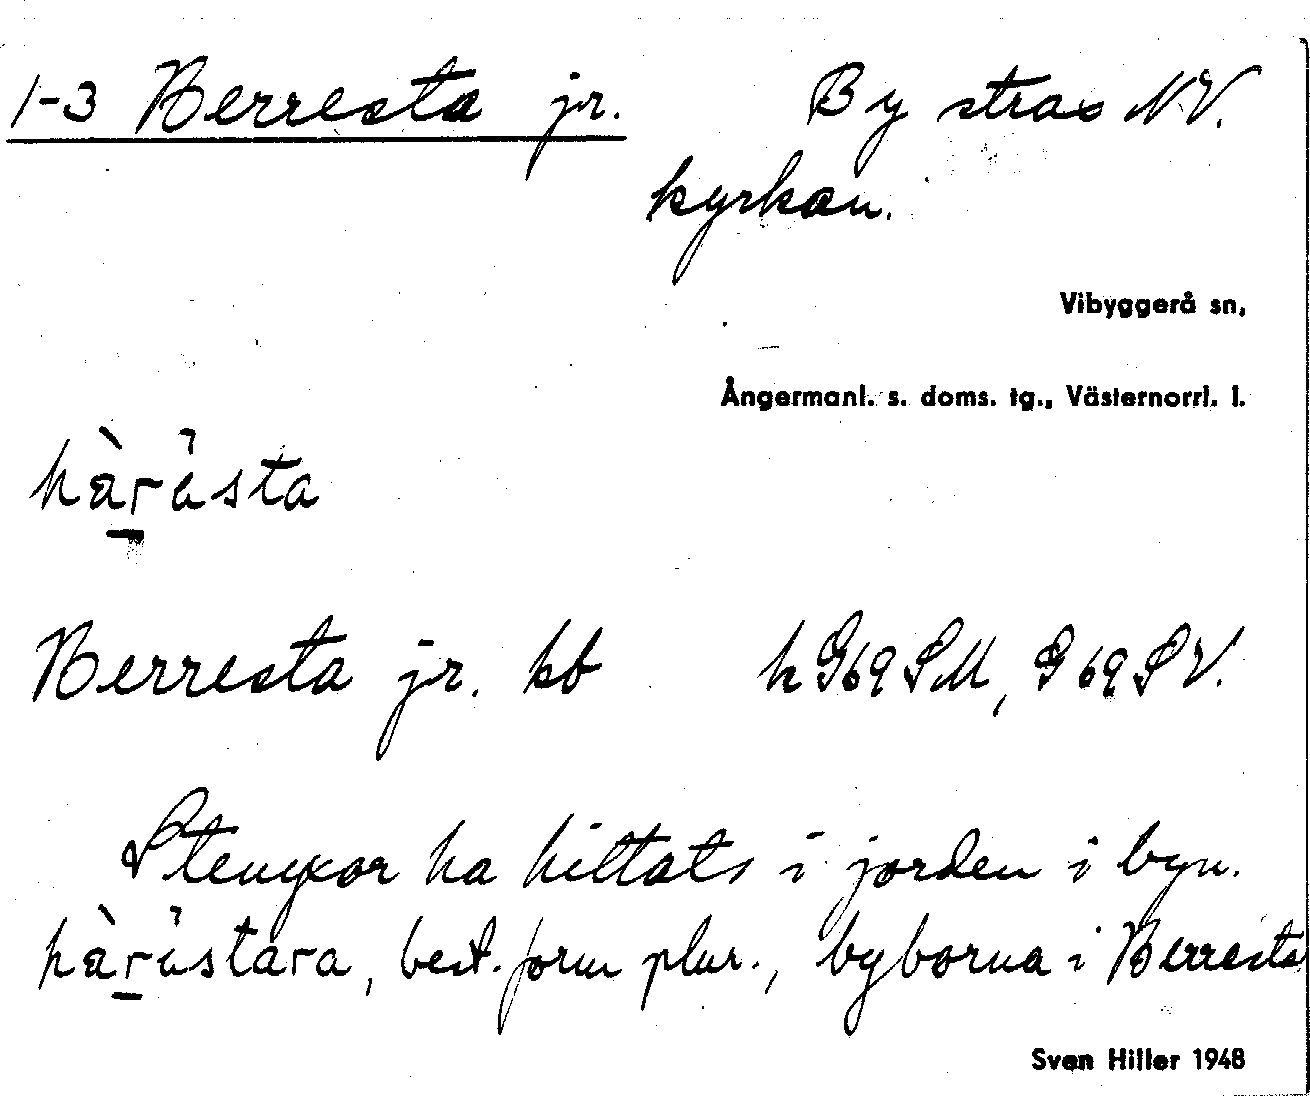 1-3 Berresta jr. By strax NV.
kyrkan.
Vibyggerå sn,
Ångermanl. s. doms. tg., Västernorrl. l.
Berresta jr. kb h G69SM, G69SV.
Stenyxor ha hittats i jorden i byn.
best. form plur., byborna i Berresta
Sven Hiller 1948